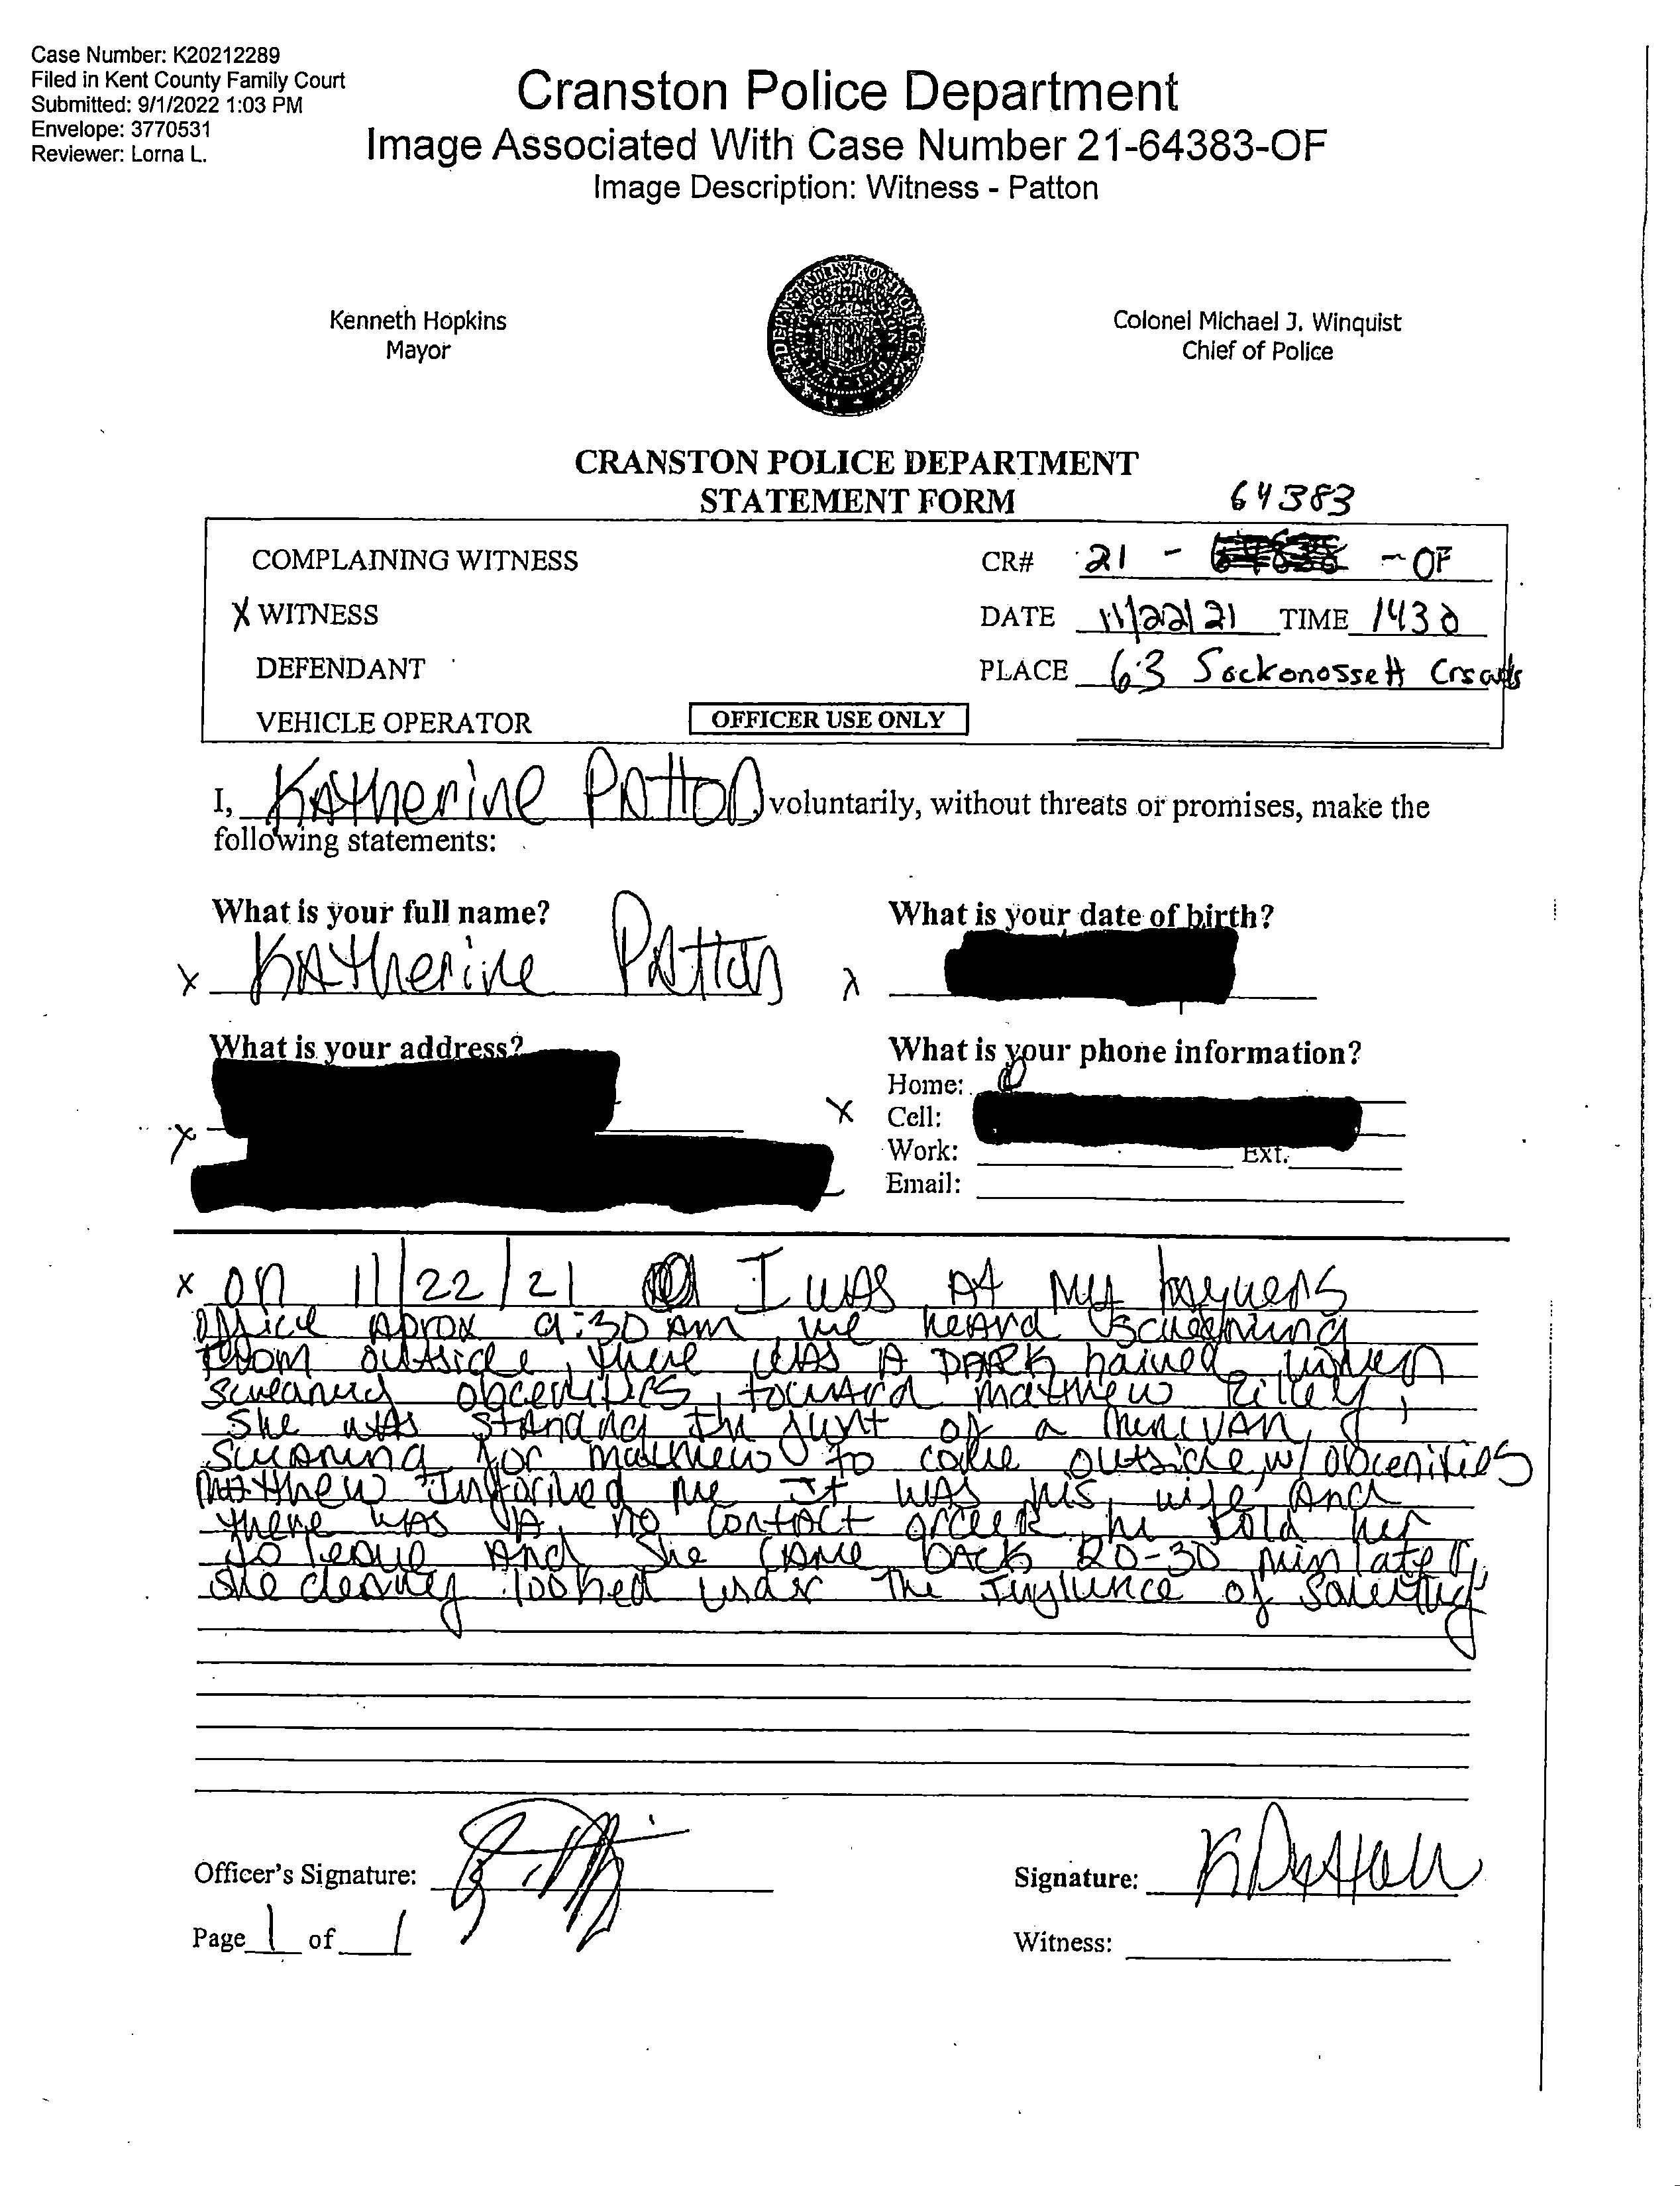 Case Number: K20212289
Filed in Kent County Family Court
Submitted: 9/1/2022 1:03 PM
Envelope: 3770531
Reviewer: Lorna L.
Cranston Police Department
Image Associated With Case Number 21-64383-OF
Image Description: Witness - Patton
Kenneth Hopkins
Mayor
Colonel Michael J. Winquist
Chief of Police
CRANSTON POLICE DEPARTMENT
STATEMENT FORM
64383
COMPLAINING WITNESS
CR# 21 - - OF
X WITNESS
DATE 11/22/21 TIME 1430
DEFENDANT
PLACE 63 Sockonossett
VEHICLE OPERATOR
OFFICER USE ONLY
I, Katherine Patton voluntarily, without threats or promises, make the
following statements:
What is your full name?
What is your date of birth?
x Katherine Patton x
What is your address?
What is your phone information?
Home:
x Cell:
x
Work: Ext.
Email:
x on 11/22/21 I was at my
office aprox 9:30 am, we heard screaming
from outside, there was a dark haired women
screaming toward Matthew Rilley,
she was standing in junt of a minivan,
for Matthew to come outside, w/ obcenities
Matthew informed me it was his wife and
there was a no contact order, he told her
to leave and she came back 20-30 min later,
she clearly looked under the influence of
Officer's Signature:
Signature: K Patton
Page 1 of 1
Witness: